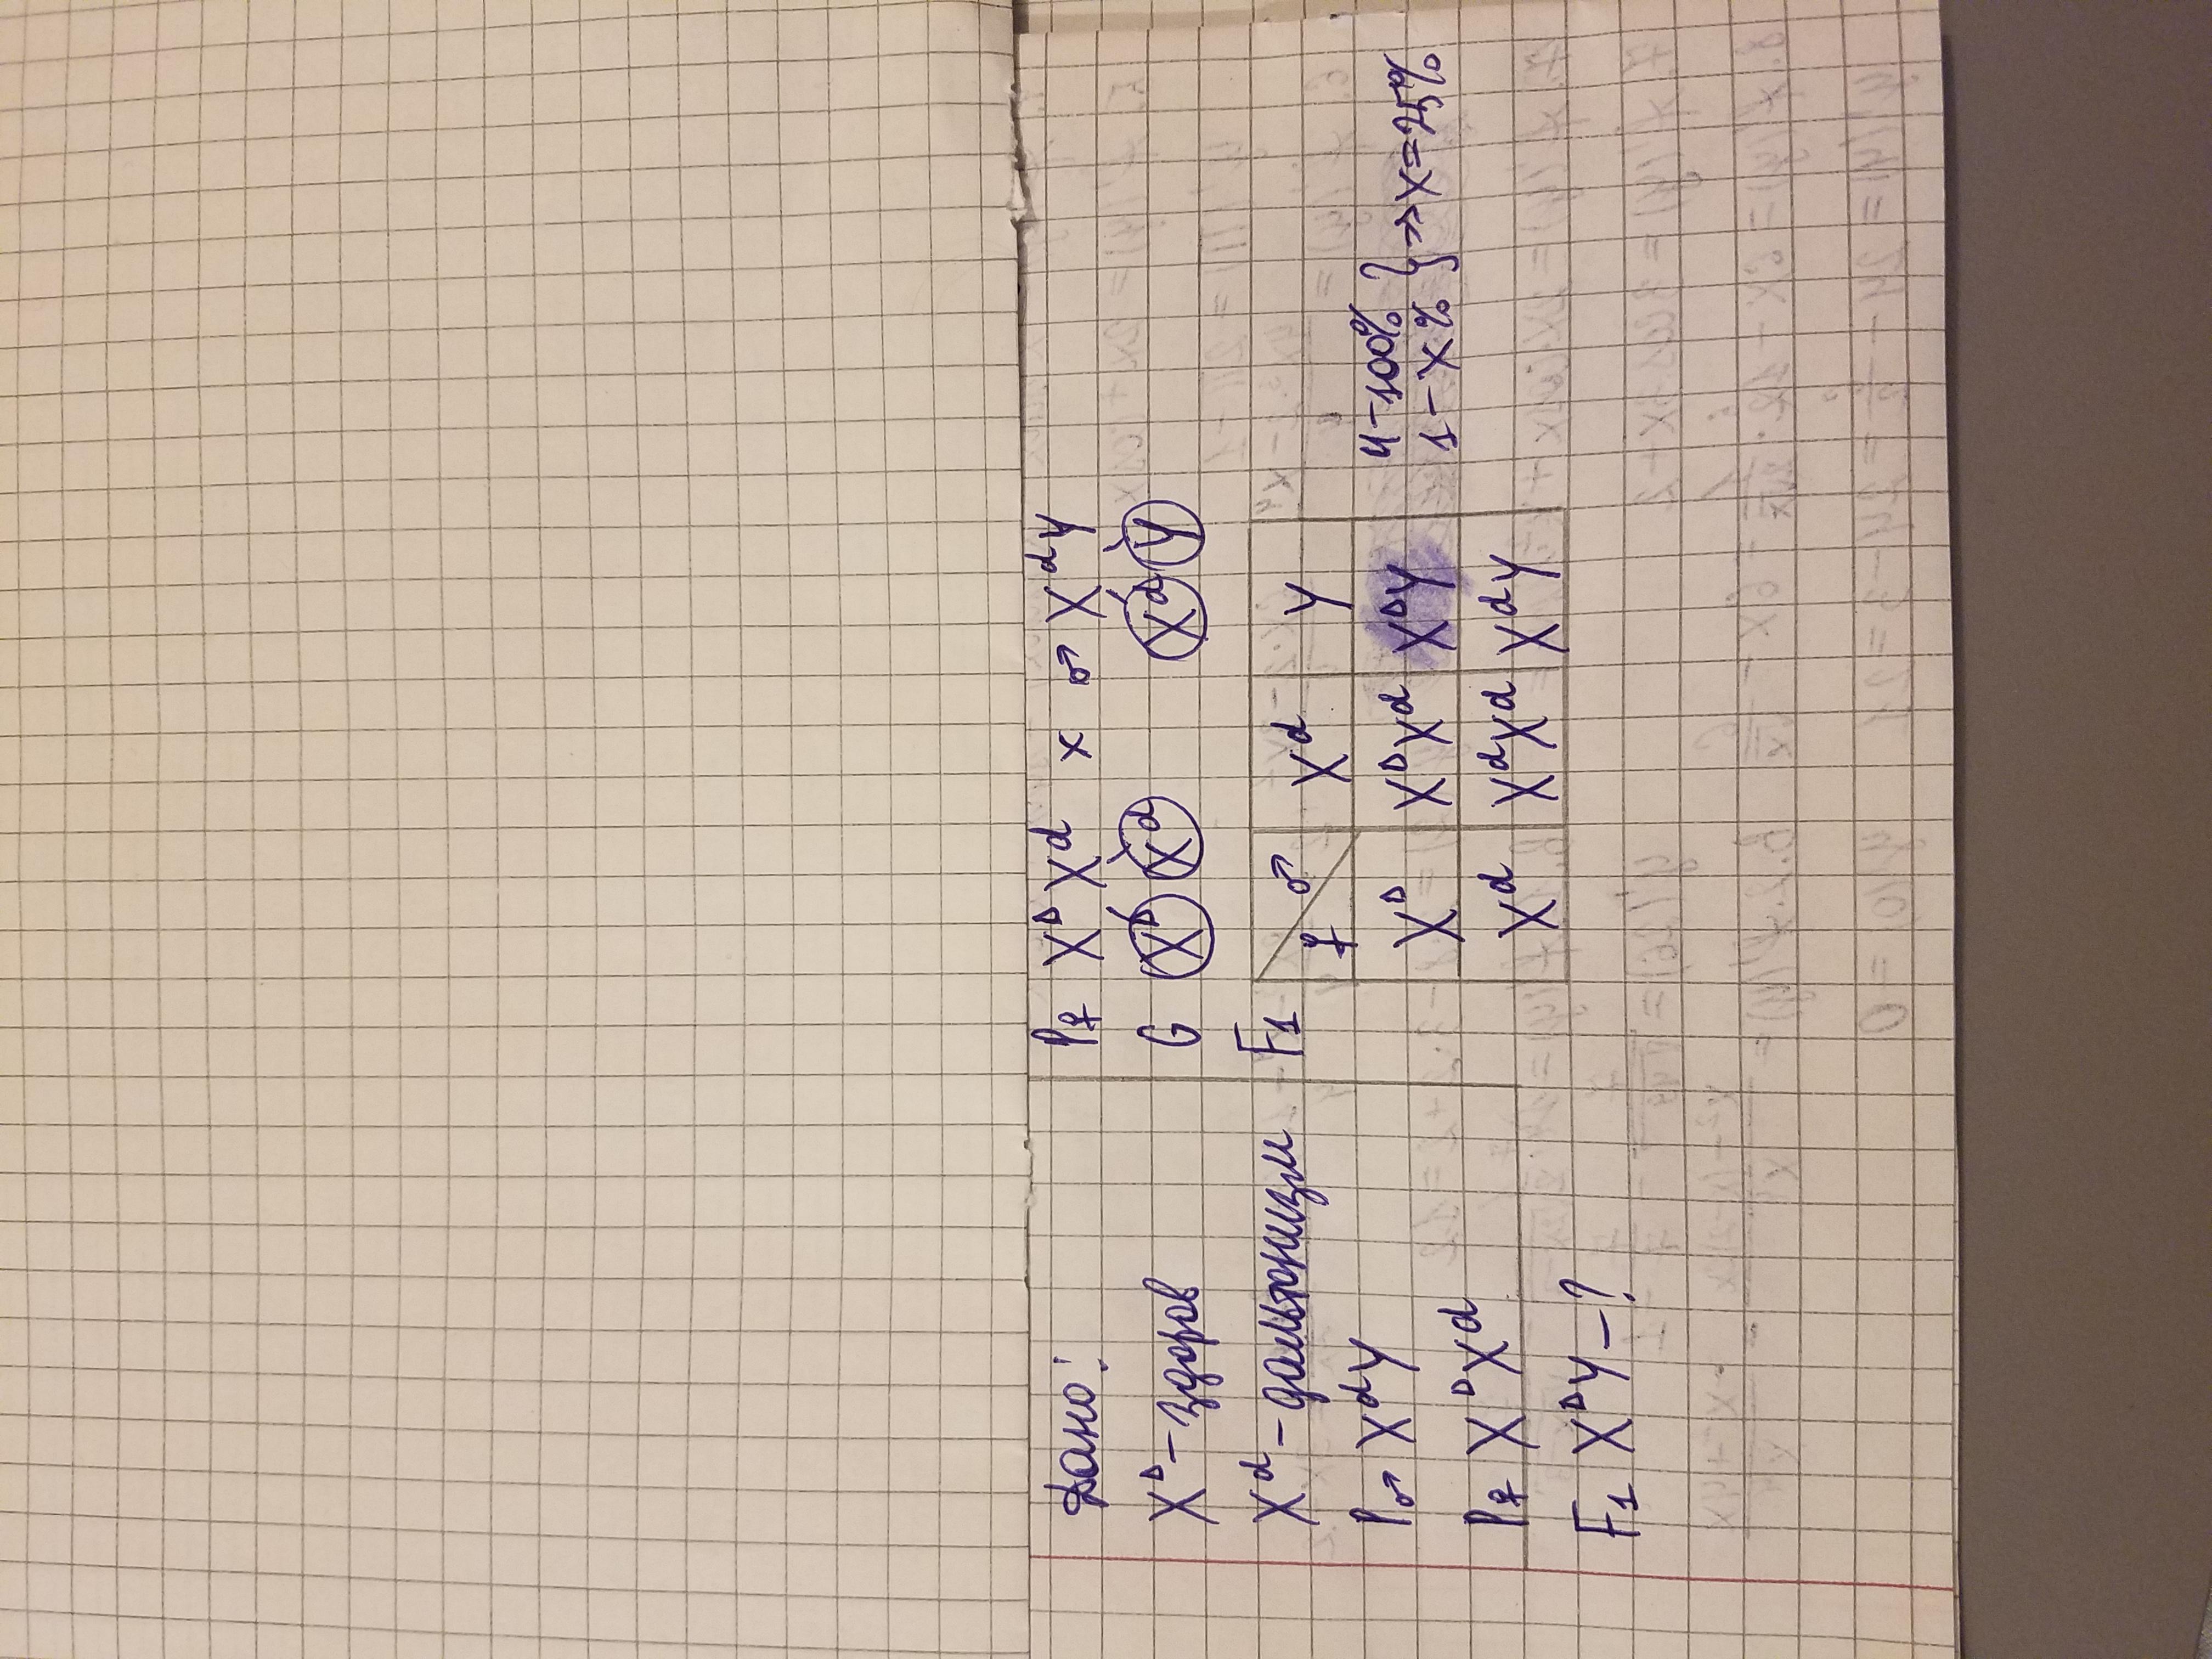 Дано:
Xᴰ – здоров
Xᵈ – дальтонизм
P♂ XᵈY
P♀ XᴰXᵈ
F₁ XᴰY – ?
P♀ XᴰXᵈ x ♂ XᵈY
G Xᴰ Xᵈ Xᵈ Y
F₁
♀ ♂ Xᵈ Y
Xᴰ XᴰXᵈ XᴰY
Xᵈ XᵈXᵈ XᵈY
4 – 100% } => X = 25%
1 – X%